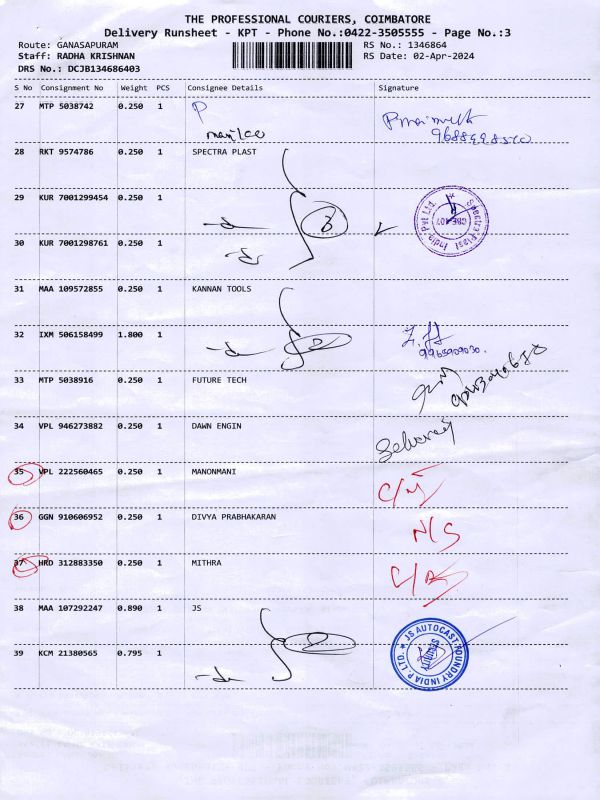 THE PROFESSIONAL COURIERS, COIMBATORE
Delivery Runsheet - KPT - Phone No.:0422-3505555 - Page No.:3
Route: GANASAPURAM RS No.: 1346864
Staff: RADHA KRISHNAN RS Date: 02-Apr-2024
DRS No.: DCJB134686403
S No Consignment No Weight PCS Consignee Details Signature
27 MTP 5038742 0.250 1 P
28 RKT 9574786 0.250 1 SPECTRA PLAST
29 KUR 7001299454 0.250 1
3
Spectra Plast India Pvt Ltd.
CBE-107
30 KUR 7001298761 0.250 1
31 MAA 109572855 0.250 1 KANNAN TOOLS
32 IXM 506158499 1.800 1
2
9965909030.
33 MTP 5038916 0.250 1 FUTURE TECH
34 VPL 946273882 0.250 1 DAWN ENGIN
35 VPL 222560465 0.250 1 MANONMANI
36 GGN 910606952 0.250 1 DIVYA PRABHAKARAN N/S
37 HRD 312883350 0.250 1 MITHRA
38 MAA 107292247 0.890 1 JS
2
JS AUTOCAST FOUNDRY INDIA P. LTD.
39 KCM 21380565 0.795 1